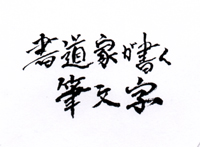 書道家が書く
筆文字